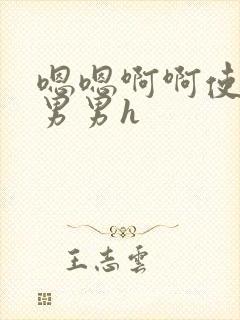 嗯嗯啊啊使
男男h
王志雲